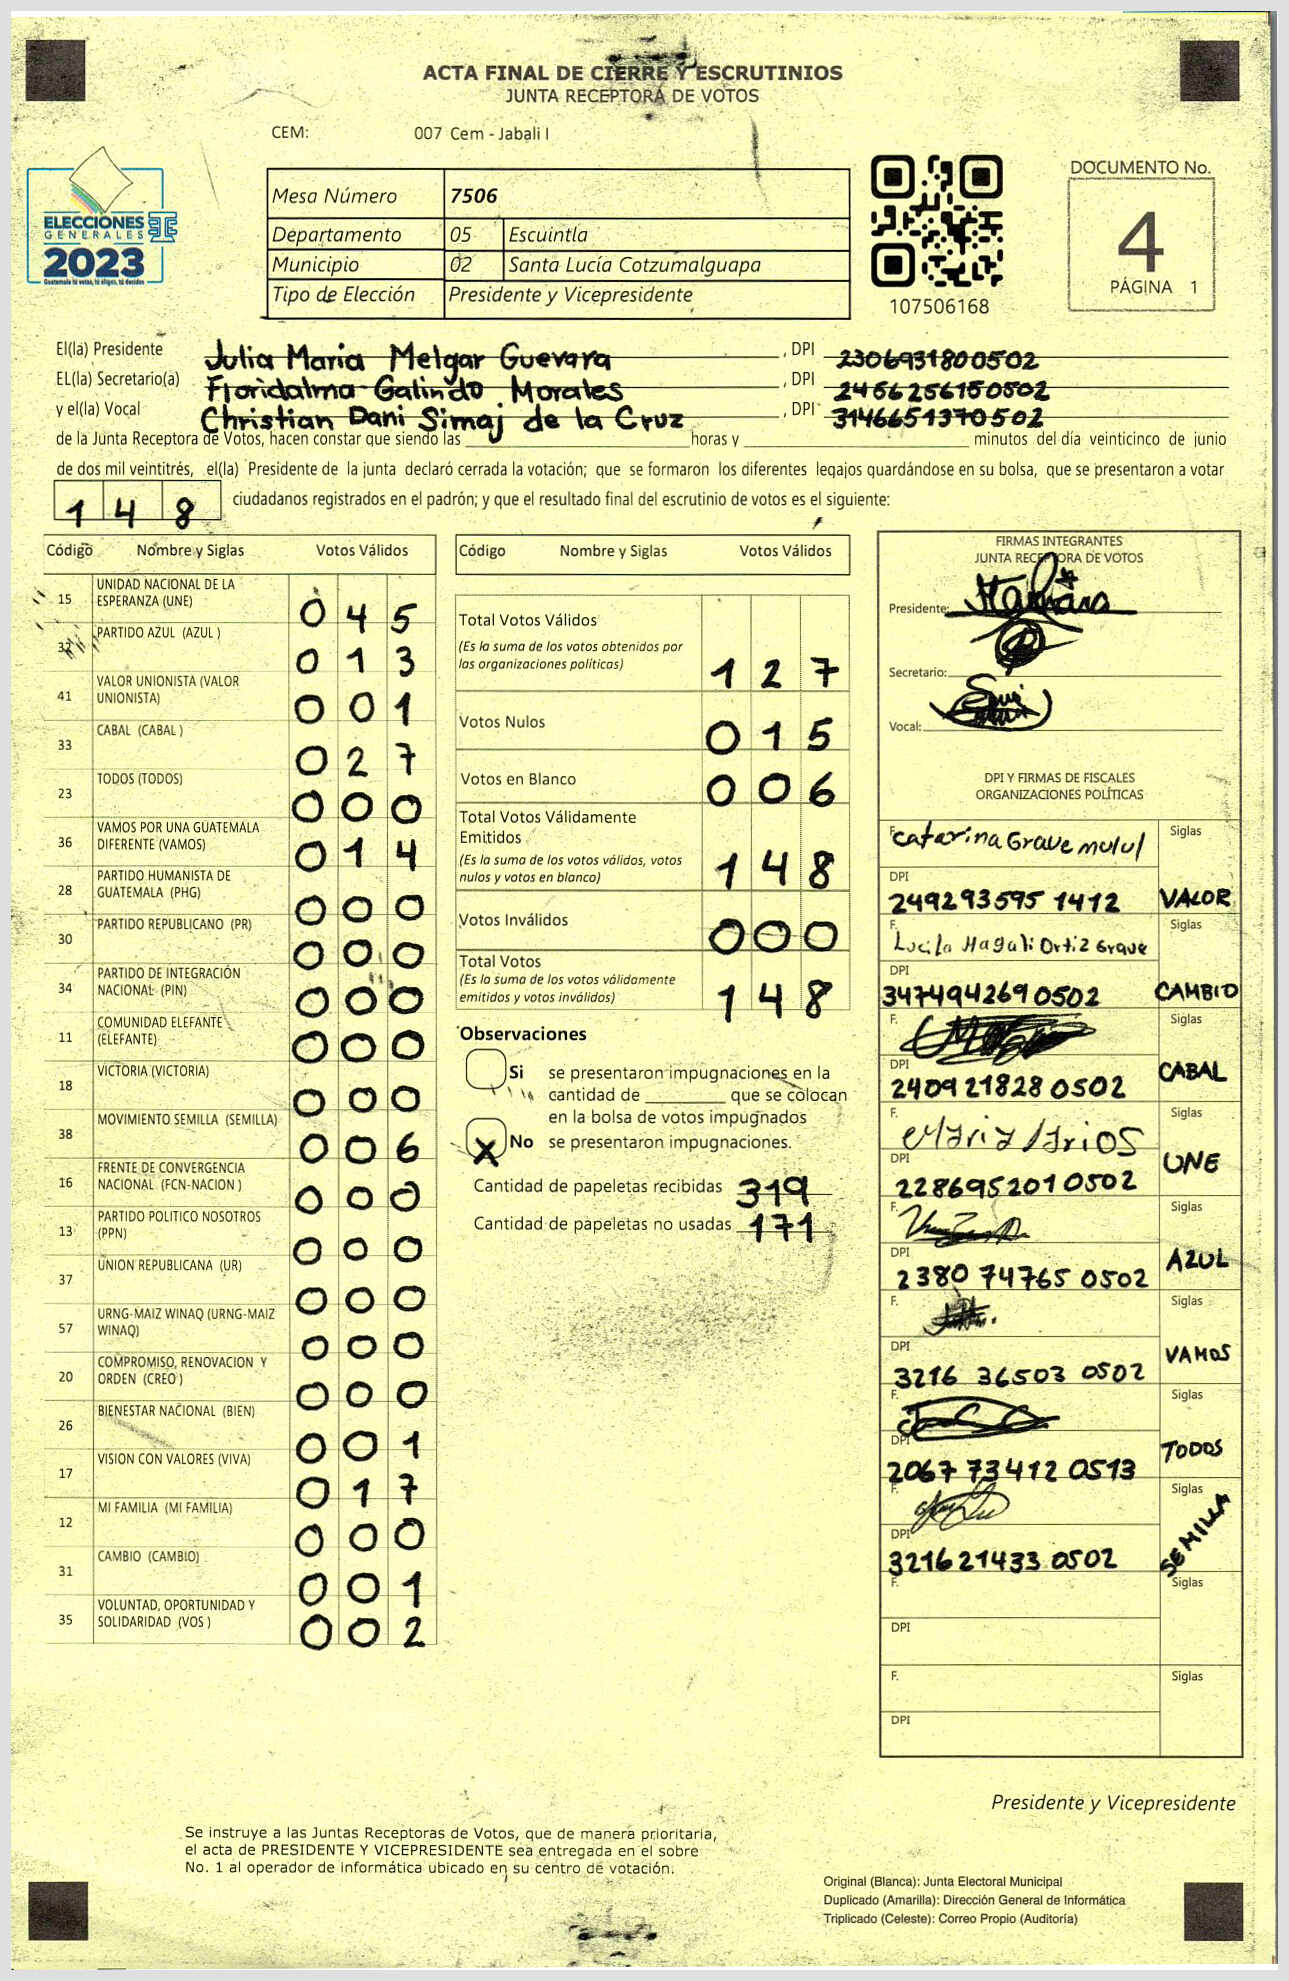 ACTA FINAL DE CIERRE Y ESCRUTINIOS
JUNTA RECEPTORA DE VOTOS
CEM: 007 Cem - Jabali I
ELECCIONES
GENERALES
2023
Guatemala tú votas, tú eliges, tú decides
Mesa Número 7506
Departamento 05 Escuintla
Municipio 02 Santa Lucía Cotzumalguapa
Tipo de Elección Presidente y Vicepresidente
107506168
DOCUMENTO No.
4
PÁGINA 1
El(la) Presidente Julia Maria Melgar Guevara , DPI 2306931800502
EL(la) Secretario(a) Floridalma Galindo Morales , DPI 2456256150502
y el(la) Vocal Christian Dani Simaj de la Cruz , DPI 3146651370502
de la Junta Receptora de Votos, hacen constar que siendo las horas y minutos del día veinticinco de junio
de dos mil veintitrés, el(la) Presidente de la junta declaró cerrada la votación; que se formaron los diferentes legajos guardándose en su bolsa, que se presentaron a votar
148 ciudadanos registrados en el padrón; y que el resultado final del escrutinio de votos es el siguiente:
Código Nombre y Siglas Votos Válidos
15 UNIDAD NACIONAL DE LA
ESPERANZA (UNE) 045
32 PARTIDO AZUL (AZUL ) 013
41 VALOR UNIONISTA (VALOR
UNIONISTA) 001
33 CABAL (CABAL ) 027
23 TODOS (TODOS) 000
36 VAMOS POR UNA GUATEMALA
DIFERENTE (VAMOS) 014
28 PARTIDO HUMANISTA DE
GUATEMALA (PHG) 000
30 PARTIDO REPUBLICANO (PR) 000
34 PARTIDO DE INTEGRACIÓN
NACIONAL (PIN) 000
11 COMUNIDAD ELEFANTE
(ELEFANTE) 000
18 VICTORIA (VICTORIA) 000
38 MOVIMIENTO SEMILLA (SEMILLA) 006
16 FRENTE DE CONVERGENCIA
NACIONAL (FCN-NACION ) 000
13 PARTIDO POLITICO NOSOTROS
(PPN) 000
37 UNION REPUBLICANA (UR) 000
57 URNG-MAIZ WINAQ (URNG-MAIZ
WINAQ) 000
20 COMPROMISO, RENOVACION Y
ORDEN (CREO ) 000
26 BIENESTAR NACIONAL (BIEN) 001
17 VISION CON VALORES (VIVA) 017
12 MI FAMILIA (MI FAMILIA) 000
31 CAMBIO (CAMBIO) 001
35 VOLUNTAD, OPORTUNIDAD Y
SOLIDARIDAD (VOS ) 002
Código Nombre y Siglas Votos Válidos
Total Votos Válidos
(Es la suma de los votos obtenidos por
las organizaciones políticas) 127
Votos Nulos 015
Votos en Blanco 006
Total Votos Válidamente
Emitidos
(Es la suma de los votos válidos, votos
nulos y votos en blanco) 148
Votos Inválidos 000
Total Votos
(Es la suma de los votos válidamente
emitidos y votos inválidos) 148
Observaciones
Si se presentaron impugnaciones en la
cantidad de que se colocan
en la bolsa de votos impugnados
X No se presentaron impugnaciones.
Cantidad de papeletas recibidas 319
Cantidad de papeletas no usadas 171
FIRMAS INTEGRANTES
JUNTA RECEPTORA DE VOTOS
Presidente:
Secretario:
Vocal:
DPI Y FIRMAS DE FISCALES
ORGANIZACIONES POLÍTICAS
F. Catarina Grave mulul Siglas
DPI
249293595 1412 VALOR
F. Lucila Magali Ortiz Grave Siglas
DPI
347494269 0502 CAMBIO
F. Siglas
DPI
240921828 0502 CABAL
F. Siglas
DPI
228695201 0502 UNE
F. Siglas
DPI
2380 74765 0502 AZUL
F. Siglas
DPI
3216 36503 0502 VAMOS
F. Siglas
DPI
2067 73412 0513 TODOS
F. Siglas
DPI
321621433 0502 SEMILLA
F. Siglas
DPI
F. Siglas
DPI
Presidente y Vicepresidente
Se instruye a las Juntas Receptoras de Votos, que de manera prioritaria,
el acta de PRESIDENTE Y VICEPRESIDENTE sea entregada en el sobre
No. 1 al operador de informática ubicado en su centro de votación.
Original (Blanca): Junta Electoral Municipal
Duplicado (Amarilla): Dirección General de Informática
Triplicado (Celeste): Correo Propio (Auditoría)